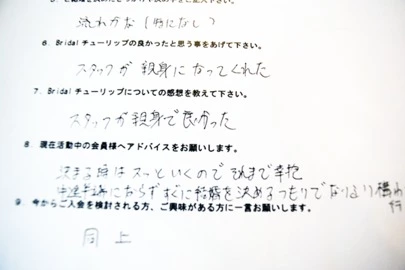 流れかな（特になし）
6. Bridal チューリップの良かったと思う事をあげて下さい。
スタッフが 親身になってくれた
7. Bridal チューリップについての感想を教えて下さい。
スタッフが親身で良かった
8. 現在活動中の会員様へアドバイスをお願いします。
決まる時はスーッといくので それまで辛抱
中途半端にならずすぐに結婚を決めるつもりで
9. 今からご入会を検討される方、ご興味がある方に一言お願いします。
同上